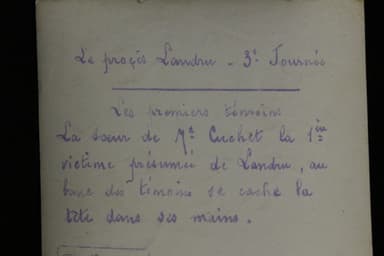 Le procès Landru - 3e Journée
Les premiers témoins
La sœur de Me Cuchet la 1ère
victime présumée de Landru, au
banc des témoins se cache la
tête dans ses mains.